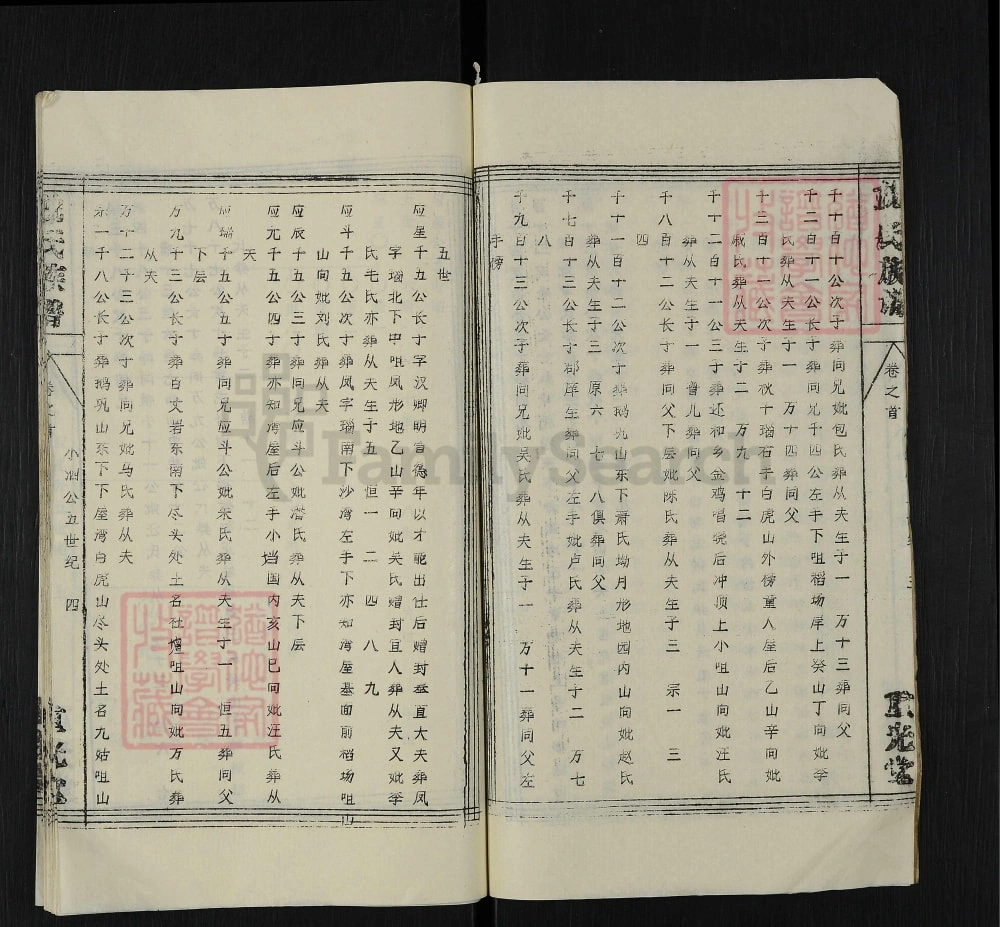 氏族谱
卷之首
重光堂
千十百十公次子葬同兄妣包氏葬从夫生子一 万十三葬同父
千二百十二公长子葬同兄千四公左手下咀稻场岸上癸山丁向妣李
氏葬从夫生子一 万十四葬同父
十三百十一公次子葬秋千瑙石手白虎山外傍董人屋后乙山辛向妣
戚氏葬从夫生子二 万九 十二
千十二百十一公三子葬还和乡金鸡唱晓后冲顶上小咀山向妣汪氏
葬从夫生子一 曾儿葬同父
千八百十二公长子葬同父下层妣陈氏葬从夫生子三 宗一 三
四
千十一百十二公次子葬鹅九山东下萧氏坳月形地园内山向妣赵氏
葬从夫生子三 原六 七 八俱葬同父
千七百十三公长子郡庠生葬同父左手妣卢氏葬从夫生子二 万七
八
千九百十三公次子葬同兄妣吴氏葬从夫生子一 万十一葬同父左
手傍
五世
应星千五公长子字汉卿明宣德年以才能出仕后赠封奉直大夫葬凤
字瑙北下中咀凤形地乙山辛向妣吴氏赠封宜人葬从夫又妣李
氏毛氏亦葬从夫生子五 恒一 二 四 八 九
应斗千五公次子葬凤字瑙南下沙湾左手下亦知湾屋基面前稻场咀山
山向妣刘氏葬从夫
应辰千五公三子葬同兄应斗公妣潜氏葬从夫下层
应元千五公四子葬亦知湾屋后左手小垱园内亥山巳向妣汪氏葬从
夫
应瑞千五公五子葬同兄应斗公妣朱氏葬从夫生子一 恒五葬同父
下层
万九十三公长子葬白文岩东南下尽头处土名社坛咀山向妣万氏葬
从夫
万十二千三公次子葬同兄妣马氏葬从夫
宗一千八公长子葬鹅九山东下下屋湾白虎山尽头处土名九姑咀山
小泗公五世纪 四
氏族谱
卷之首
重光堂